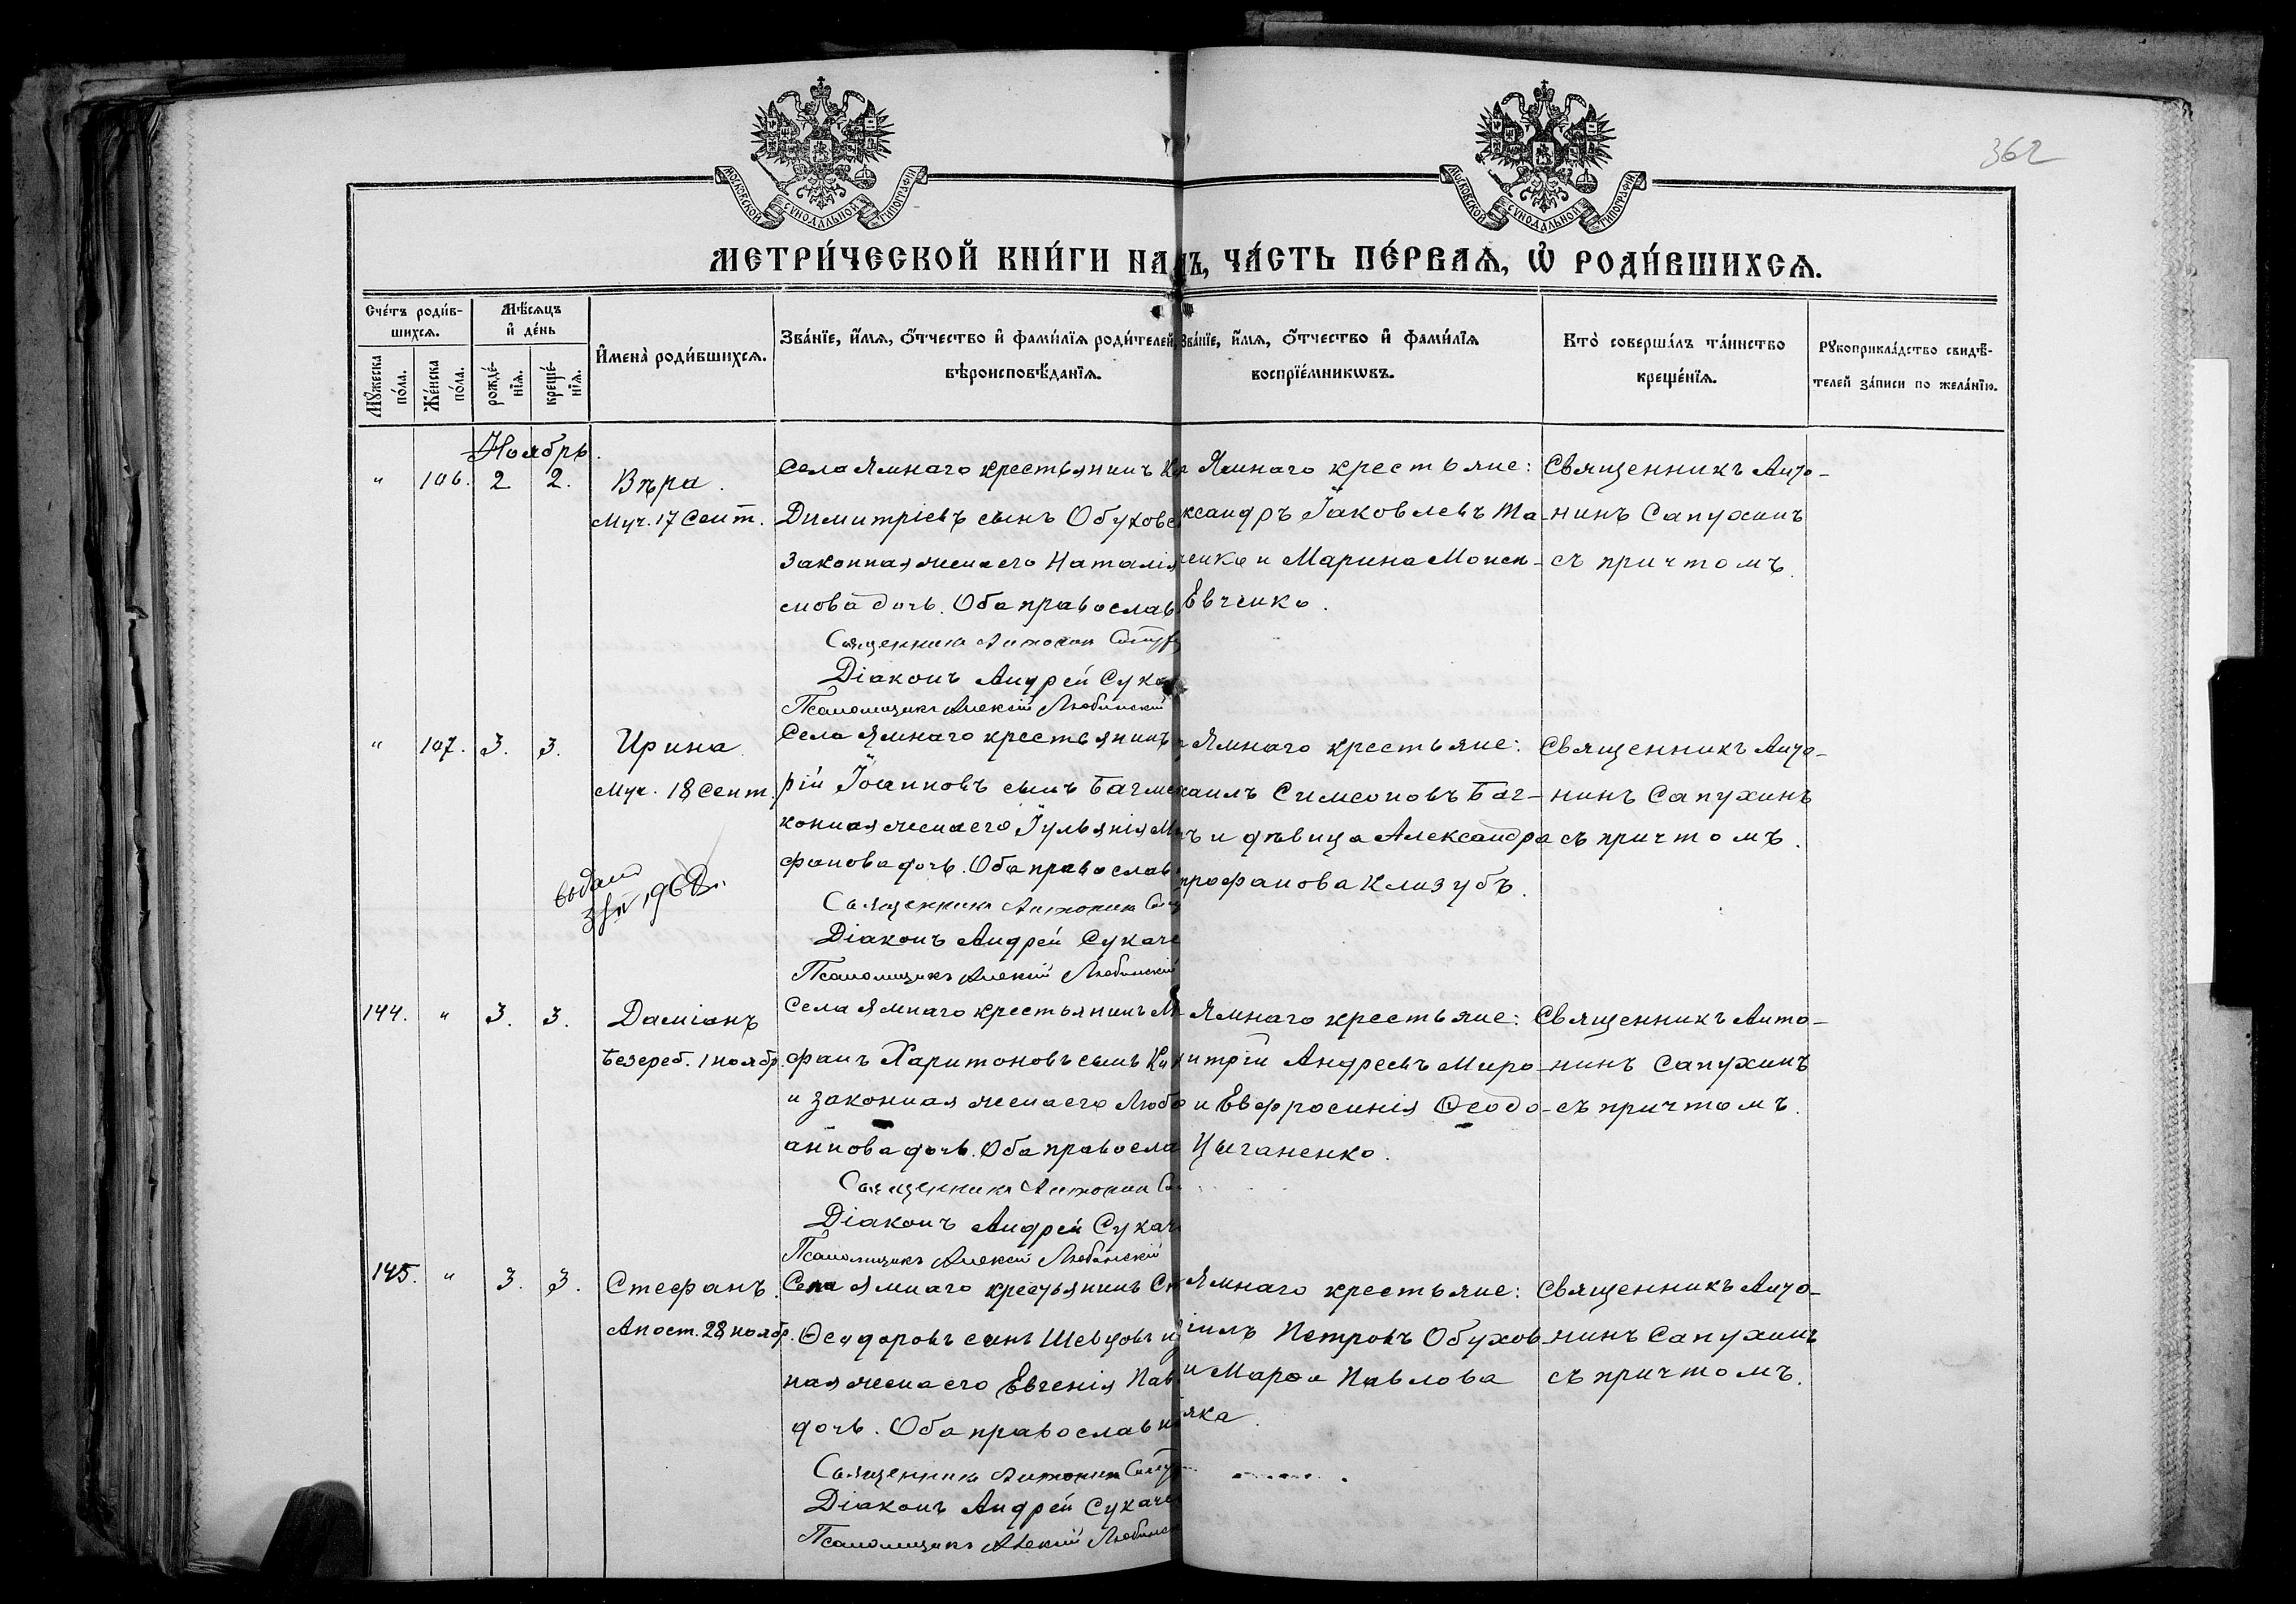 362
МОСКОВСКОЙ СѴНОДАЛЬНОЙ ТИПОГРАФІИ
МОСКОВСКОЙ СѴНОДАЛЬНОЙ ТИПОГРАФІИ
МЕТРИ́ЧЕСКОЙ КНИ́ГИ НА
Ъ, ЧА́СТЬ ПЕ́РВАѦ, Ѽ РОДИ́ВШИХСѦ.
Сче́тъ роди́в-
шихсѧ.
Мѣ́сѧцъ
и҆ де́нь
Мꙋ́жеска по́ла.
Же́нска по́ла.
рожде́-нїѧ.
креще́-нїѧ.
И҆мена̀ роди́вшихсѧ.
Зва́нїе, и҆́мѧ, ѻ҆́тчество и҆ фами́лїѧ роди́телей,
вѣроисповѣ́данїѧ.
Зва́нїе, и҆́мѧ, ѻ҆́тчество и҆ фами́лїѧ
воспрїе́мникѡвъ.
Кто̀ соверша́лъ та́инство
креще́нїѧ.
Рꙋкоприкла́дство свидѣ́-
телей за́писи по жела́нїю.
Ноябрь.
" 106. 2 2. Вѣра.
Муч. 17 Сент.
Села Ямнаго крестьянинъ
Димитріевъ сынъ Обухов
законная жена его Наталія
мова дочь. Оба православ
Священникъ Антонин
Діаконъ Андрей Сука
Псаломщикъ Алексій Любинскій
Ямнаго крестьяне:
ксандръ Іаковлевъ Тка-
ченко и Марина Моисе-
Евченко.
Священникъ Анто-
нинъ Сапухинъ
съ причтомъ.
" 107. 3. 3. Ирина
Муч. 18 Сент.
выдана
Села Ямнаго крестьянинъ
рій Іоанновъ сынъ Багме
конная жена его Іульянія М
фанова дочь. Оба православ
Священникъ Антонин
Діаконъ Андрей Сукаче
Псаломщикъ Алексій Любинскій
Ямнаго крестьяне:
хаилъ Симеоновъ Баг-
ъ и дѣвица Александра
трофанова Клизубъ.
Священникъ Анто-
нинъ Сапухинъ
съ причтомъ.
144. " 3. 3. Даміанъ
Безсреб. 1 ноябр.
Села Ямнаго крестьянинъ М
фанъ Харитоновъ сынъ
и законная жена его Любо
аннова дочь. Оба правосла
Священникъ Антонин
Діаконъ Андрей Сукач
Псаломщикъ Алексій Любинскій
Ямнаго крестьяне:
итрій Андреевъ Миро-
и Евфросинія Ѳеодо-
Цыганенко.
Священникъ Анто-
нинъ Сапухинъ
съ причтомъ.
145. " 3. 3. Стефанъ.
Апост. 28 ноябр.
Села Ямнаго крестьянинъ
Ѳеодоровъ сынъ Шевцовъ и
ная жена его Евгенія Пав
дочь. Оба православн
Священникъ Антонин
Діаконъ Андрей Сукаче
Псаломщикъ Алексій Любинск
Ямнаго крестьяне:
іилъ Петровъ Обухов
и Марѳа Павлова
яка.
Священникъ Анто-
нинъ Сапухинъ
съ причтомъ.